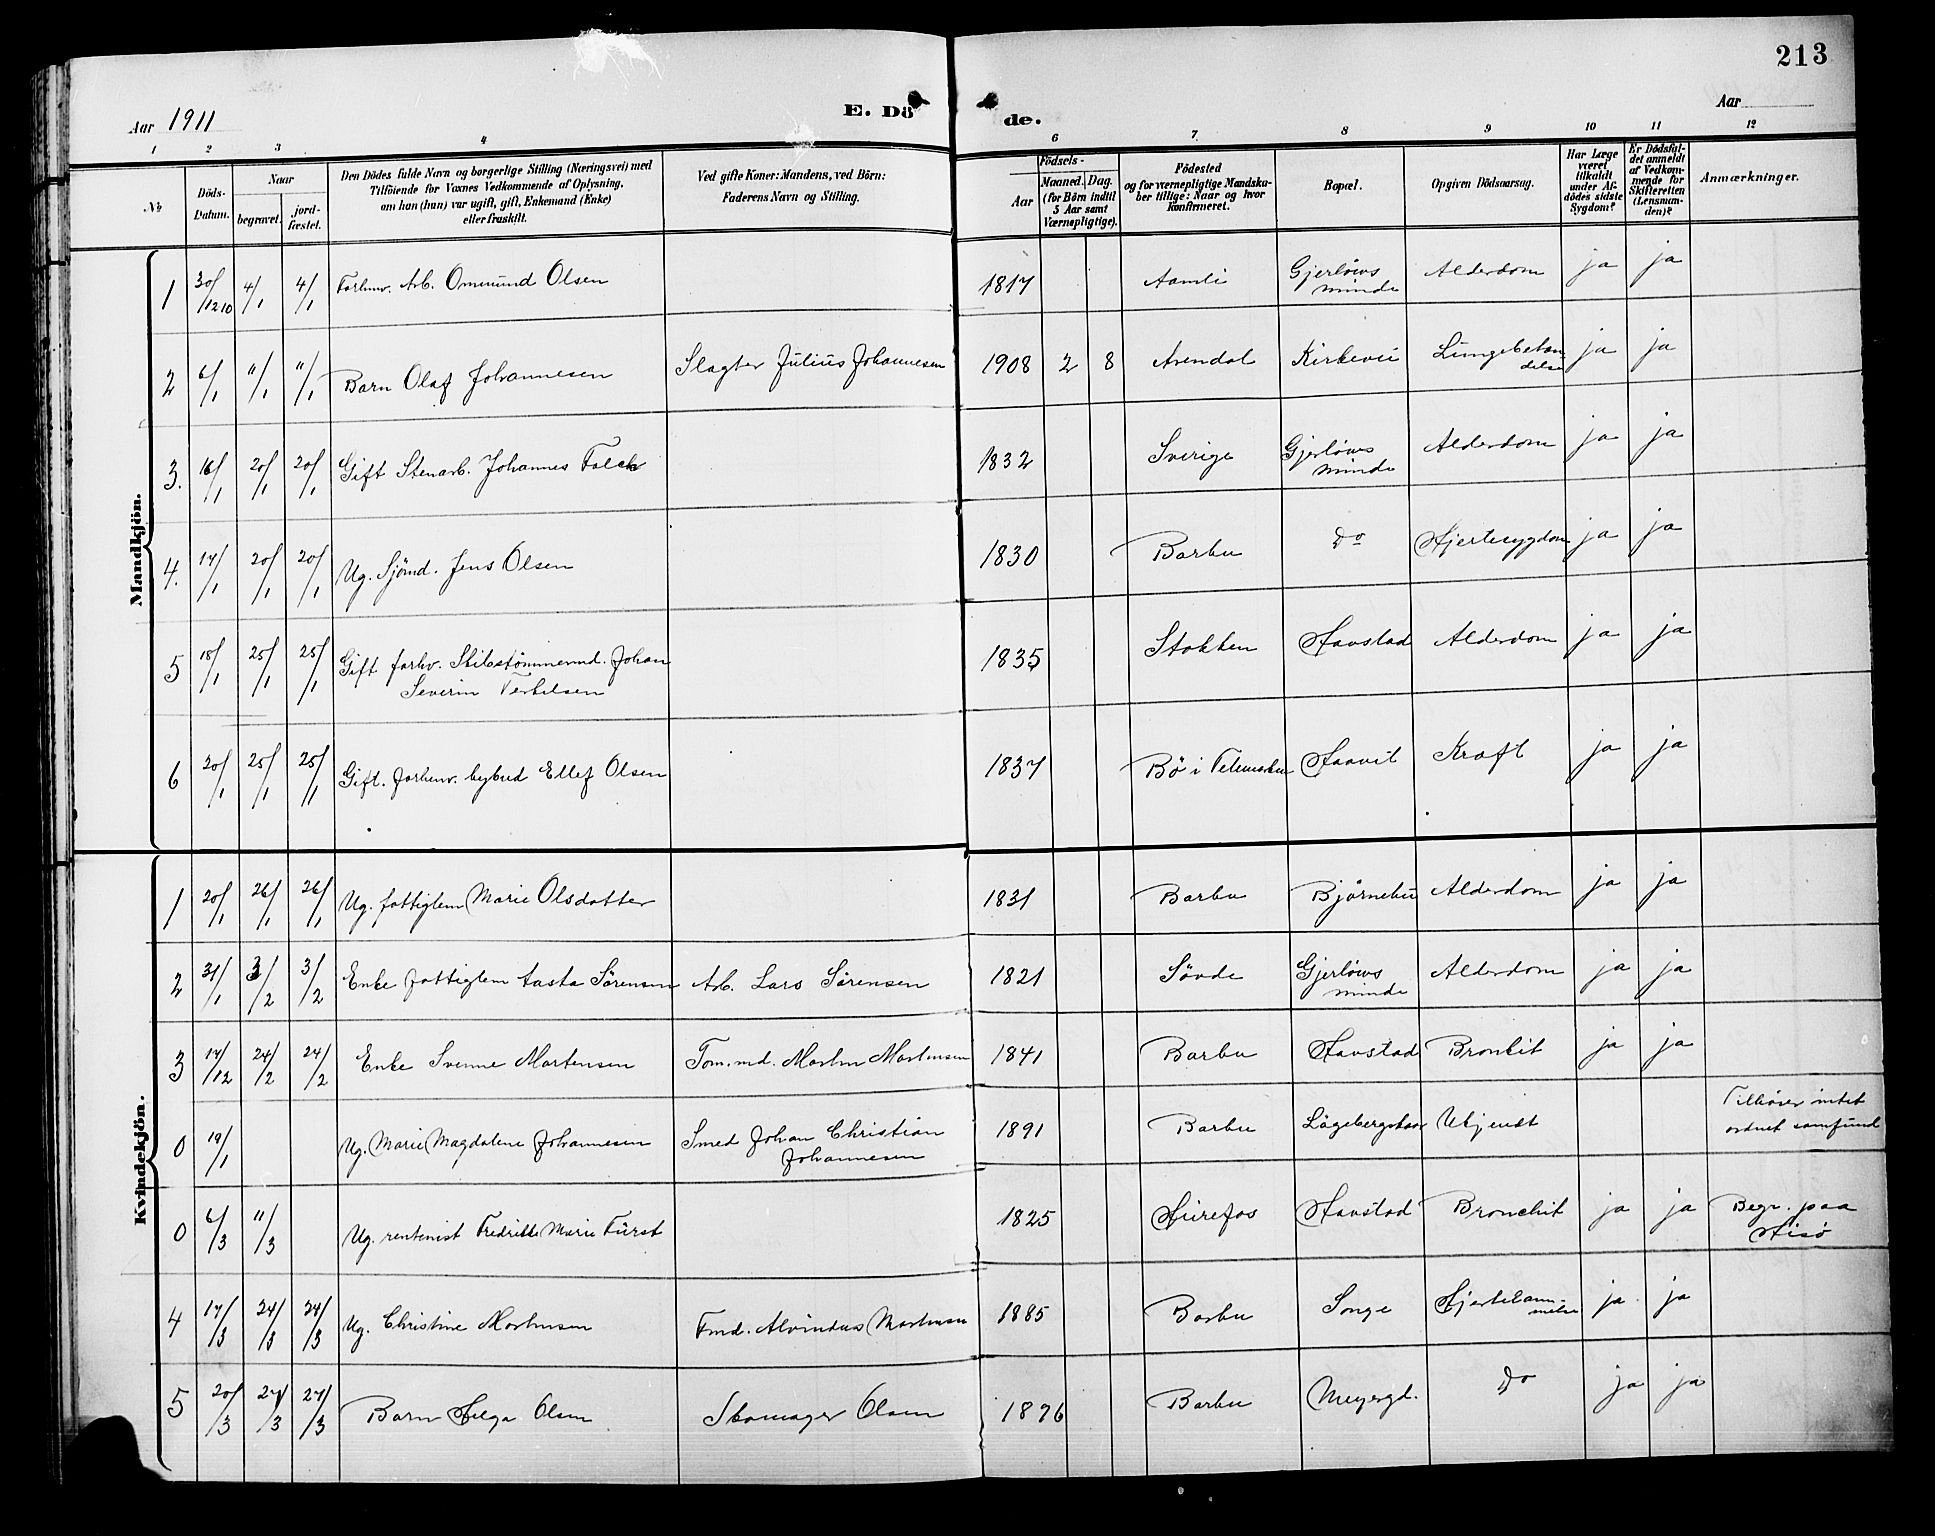 213
Aar 1911
E. Dö
de.
Aar
1 2 3 4 6 7 8 9 10 11 12
No.
Döds-
Datum.
Naar
begravet.
jord-
fæstet.
Den Dödes fulde Navn og borgerlige Stilling (Næringsvei) med
Tilföiende for Voxnes Vedkommende af Oplysning,
om han (hun) var ugift, gift, Enkemand (Enke)
eller fraskilt.
Ved gifte Koner: Mandens, ved Börn:
Faderens Navn og Stilling.
Födsels-
Aar
Maaned.
Dag.
(for Börn indtil
5 Aar samt
Værnepligtige).
Födested
og for værnepligtige Mandska-
ber tillige: Naar og hvor
konfirmeret.
Bopæl.
Opgiven Dödsaarsag.
Har Læge
været
tilkaldt
under Af-
dödes sidste
Sygdom?
Er Dödsfal-
det anmeldt
af Vedkom-
mende for
Skifteretten
(Lensman-
den)?
Anmærkninger.
Mandkjön.
1 30/12 10 4/1 4/1 Forhenv. Arb. Ommund Olsen 1817 Aamli Gjerlöws minde Alderdom ja ja
2 6/1 11/1 11/1 Barn Olaf Johannesen Slagter Julius Johannesen 1908 2 8 Arendal Kirkevei Lungebetændelse ja ja
3. 16/1 20/1 20/1 Gift Stenarb. Johannes Falck 1832 Sverige Gjerlöws minde Alderdom ja ja
4. 14/1 20/1 20/1 Ug. Sjömd. Jens Olsen 1830 Barbu Do Hjertesygdom ja ja
5 18/1 25/1 25/1 Gift forhv. Skibstømmermd. Johan
Severin Terkelsen 1835 Stokken Havstad Alderdom ja ja
6 20/1 25/1 25/1 Gift. forhenv. bybud Ellef Olsen 1837 Bö i Telemarken Haavet Kræft ja ja
Kvindekjön.
1 20/1 26/1 26/1 Ug. fattiglem Marie Olsdatter 1831 Barbu Björnebu Alderdom ja ja
2 31/1 3/2 3/2 Enke fattiglem Aasta Sörensen Arb. Lars Sørensen 1821 Søvde Gjerlöws minde Alderdom ja ja
3 14/12 24/2 24/2 Enke Svenne Mortensen Tøm.md. Morten Mortensen 1841 Barbu Havstad Bronkit ja ja
0 19/1 Ug. Marie Magdalene Johannesen Smed Johan Christian
Johannesen 1891 Barbu Ukjendt Tilhører intet
ordnet samfund
0 6/3 11/3 Ug. rentenist Fredrikke Marie Fürst 1825 Hirefos Havstad Bronchit ja ja Begr. paa
Hisö
4 17/3 24/3 24/3 Ug. Christine Mortensen Tmd. Mortensen 1885 Barbu Songe Hjertelammelse ja ja
5 20/3 27/3 27/3 Barn Helga Olsen Skomager Olsen 1896 Barbu Meyergd. Do ja ja